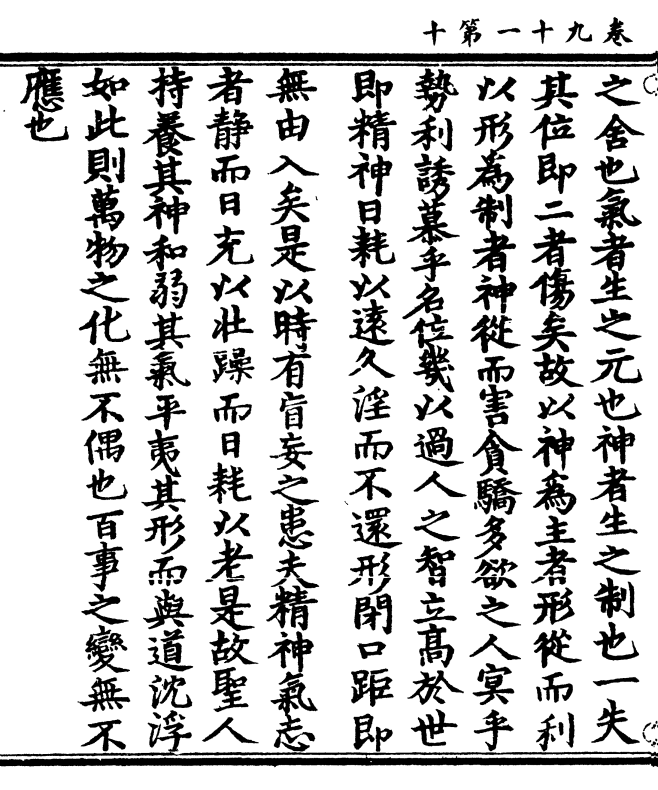 卷九十一第十
之舍也氣者生之元也神者生之制也一失
其位即二者傷矣故以神為主者形從而利
以形為制者神從而害貪驕多欲之人冥乎
勢利誘慕乎名位幾以過人之智立高於世
即精神日耗以遠久淫而不還形閉口距即
無由入矣是以時有盲妄之患夫精神氣志
者静而日充以壯躁而日耗以老是故聖人
持養其神和弱其氣平夷其形而與道沈浮
如此則萬物之化無不偶也百事之變無不
應也